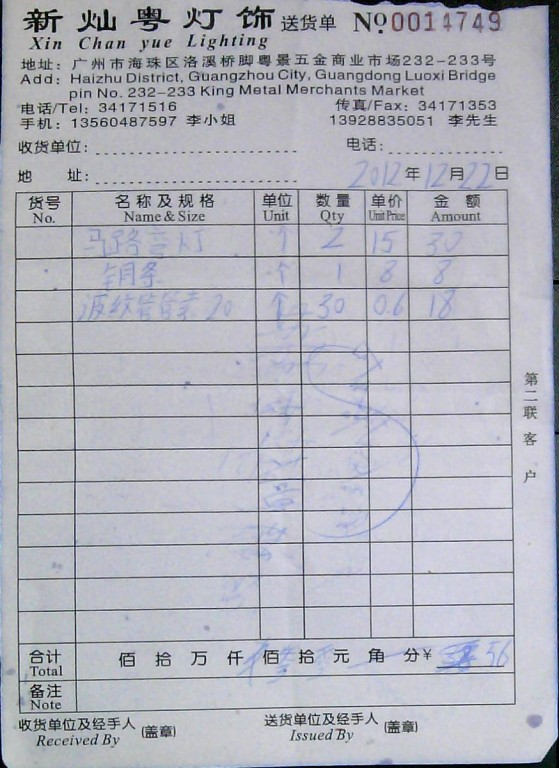 新灿粤灯饰 送货单 No.0014749
Xin Chan yue Lighting
地址：广州市海珠区洛溪桥脚粤景五金商业市场232-233号
Add: Haizhu District, Guangzhou City, Guangdong Luoxi Bridge
pin No. 232-233 King Metal Merchants Market
电话/Tel: 34171516 传真/Fax: 34171353
手机：13560487597 李小姐 13928835051 李先生
收货单位： 电话：
地 址： 2012年12月22日
货号 名称及规格 单位 数量 单价 金额
No. Name & Size Unit Qty Unit Price Amount
马路 灯 个 2 15 30
个 1 8 8
波纹管 20 个 30 0.6 18
第二联客户
合计 佰拾万仟佰拾元角分¥ 56
Total
备注
Note
收货单位及经手人 (盖章) 送货单位及经手人 (盖章)
Received By Issued By